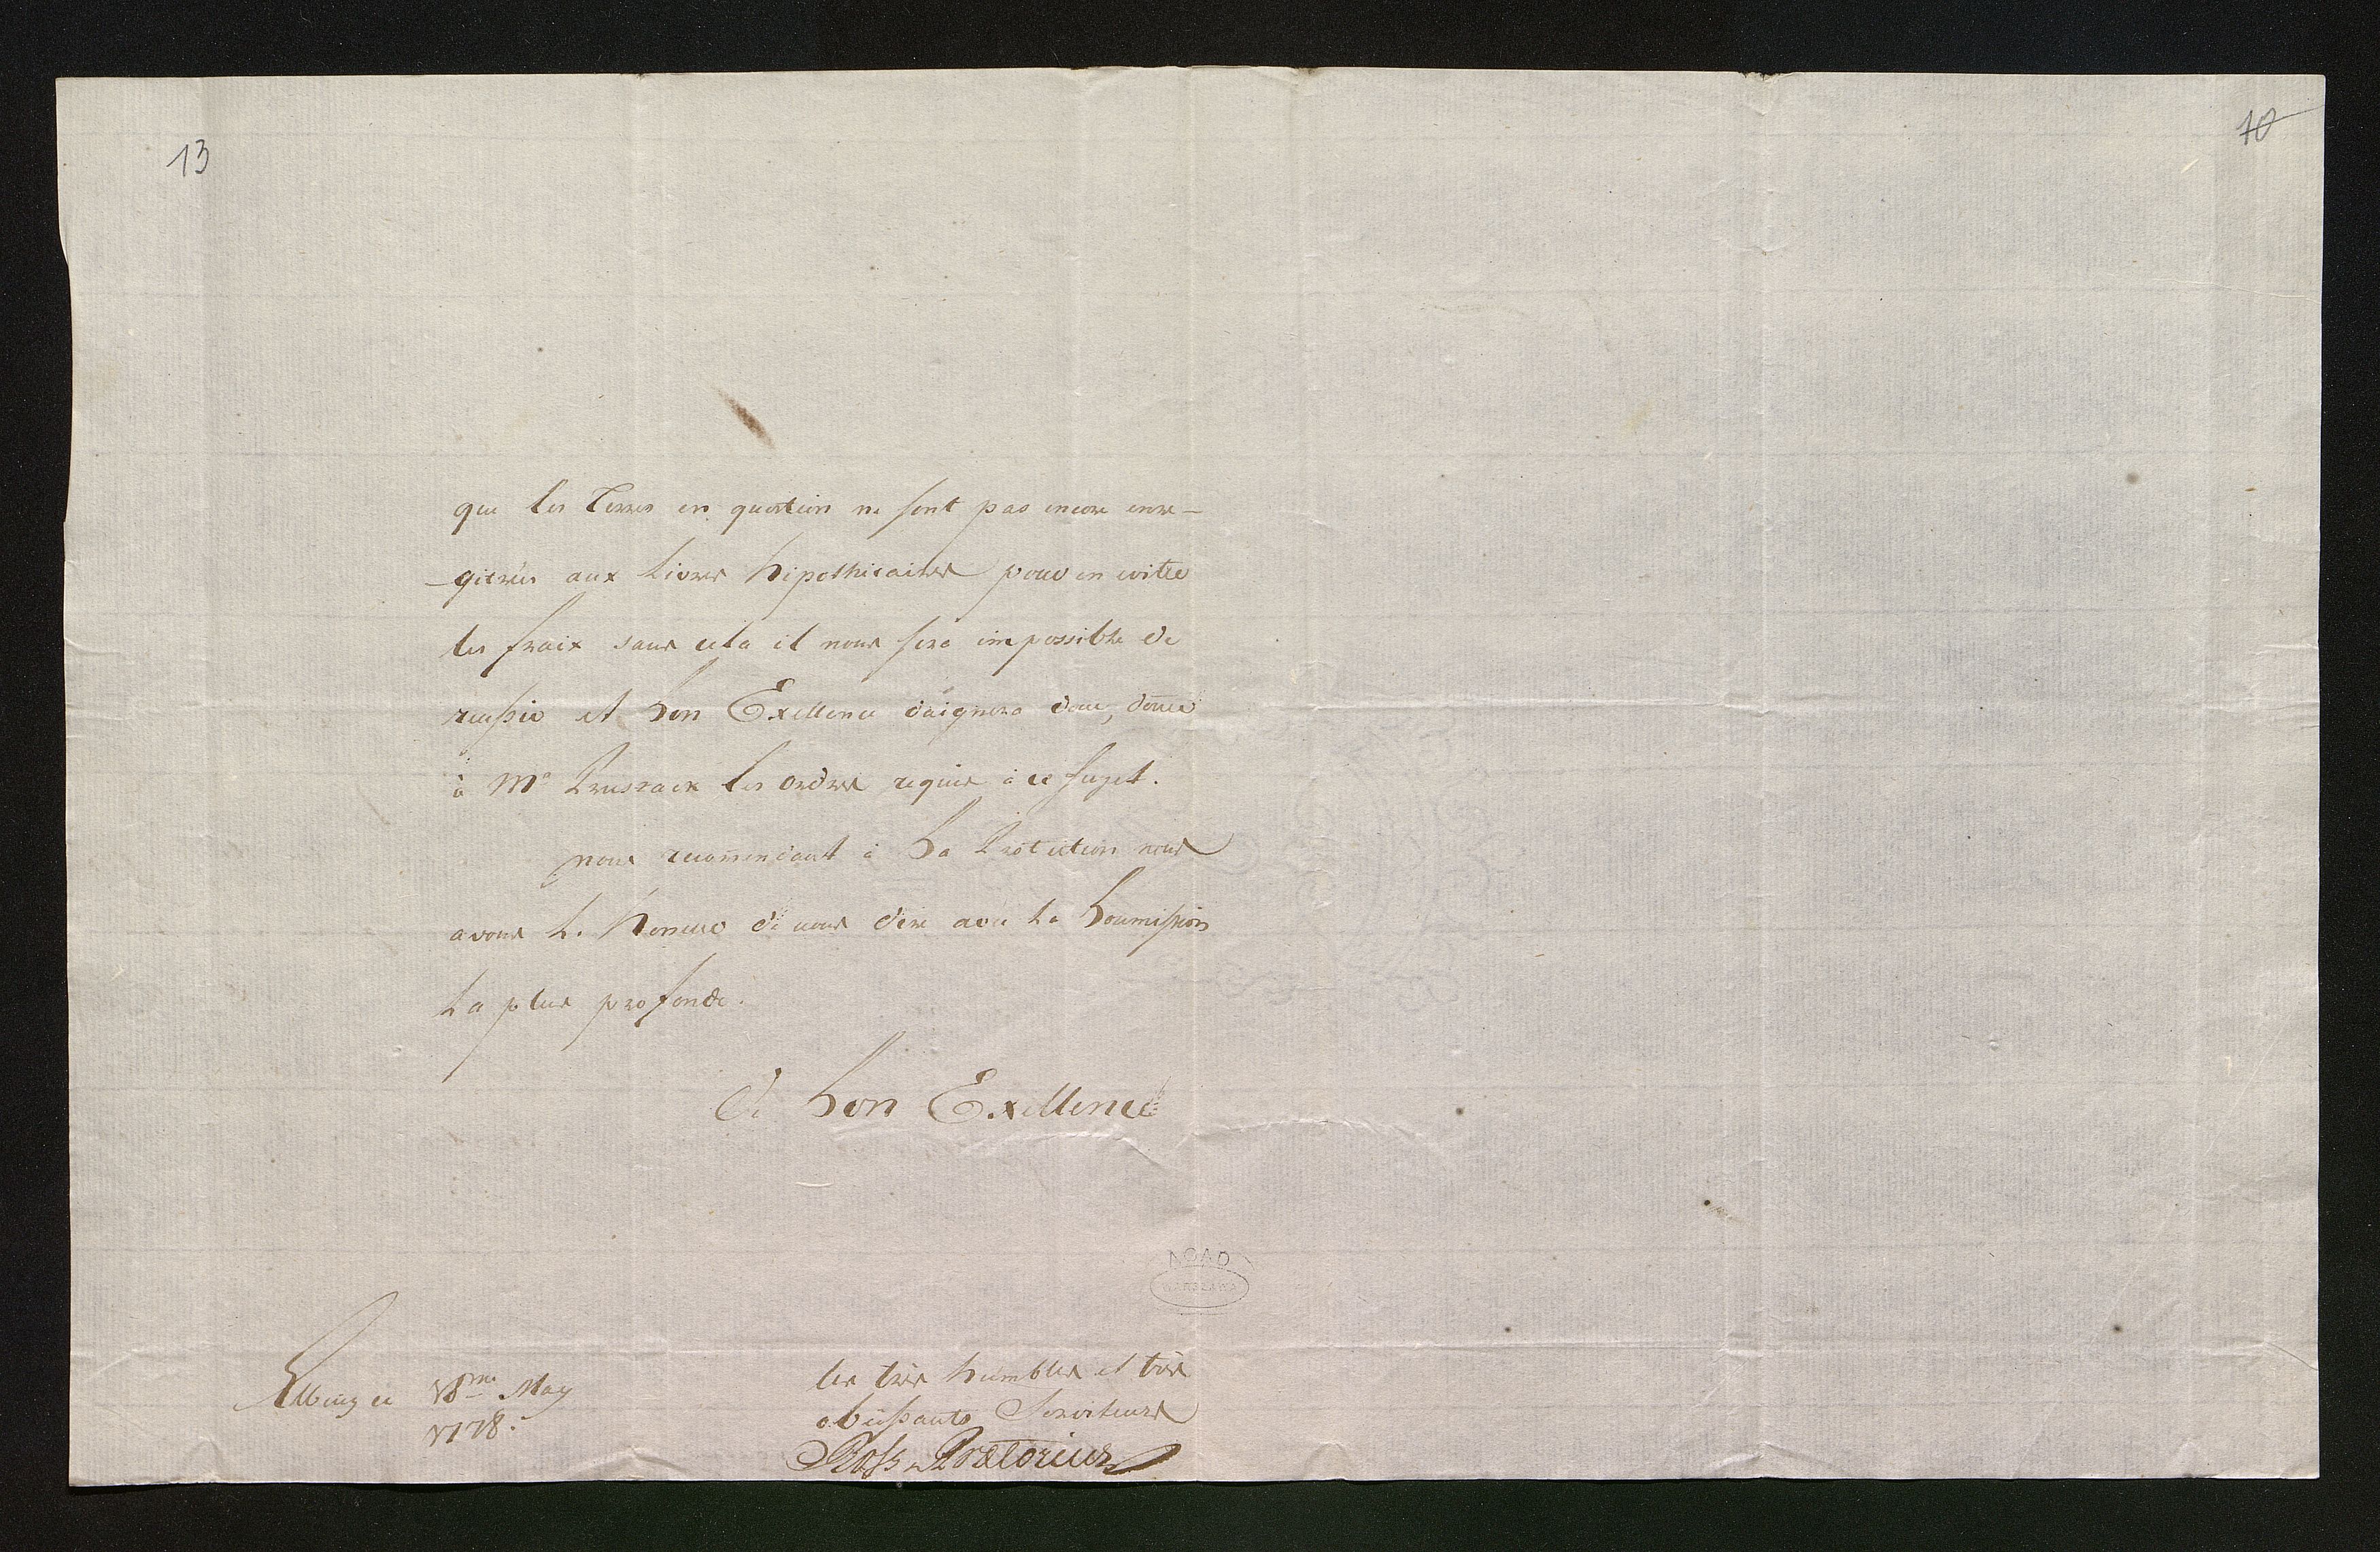 13
10
que les Terres en question ne sont pas encore enre-
-gitrées aux Livres hipothicaires pour en eviter
les fraix sans cela il nous sera impossible de
reussir et Son Exellence daignera donc, doñer
à Mr Pruszack les ordres requis à ce sujet.
nous recoṁendant à Sa Protection nous
avons L. Honeur de nous dire avec La Soumission
La plus profonde.
De Son Exellence
AGAD
WARSZAWA
Elbing ce 18me May
1778.
les très humbles et très
obeissants Serviteurs
Ross Prætorius